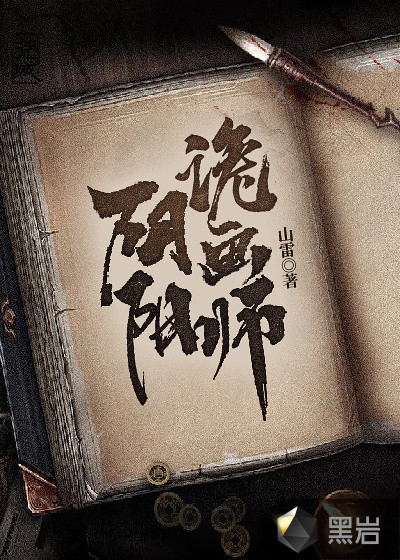 阴阳
诡画师
山雷◎著
黑岩